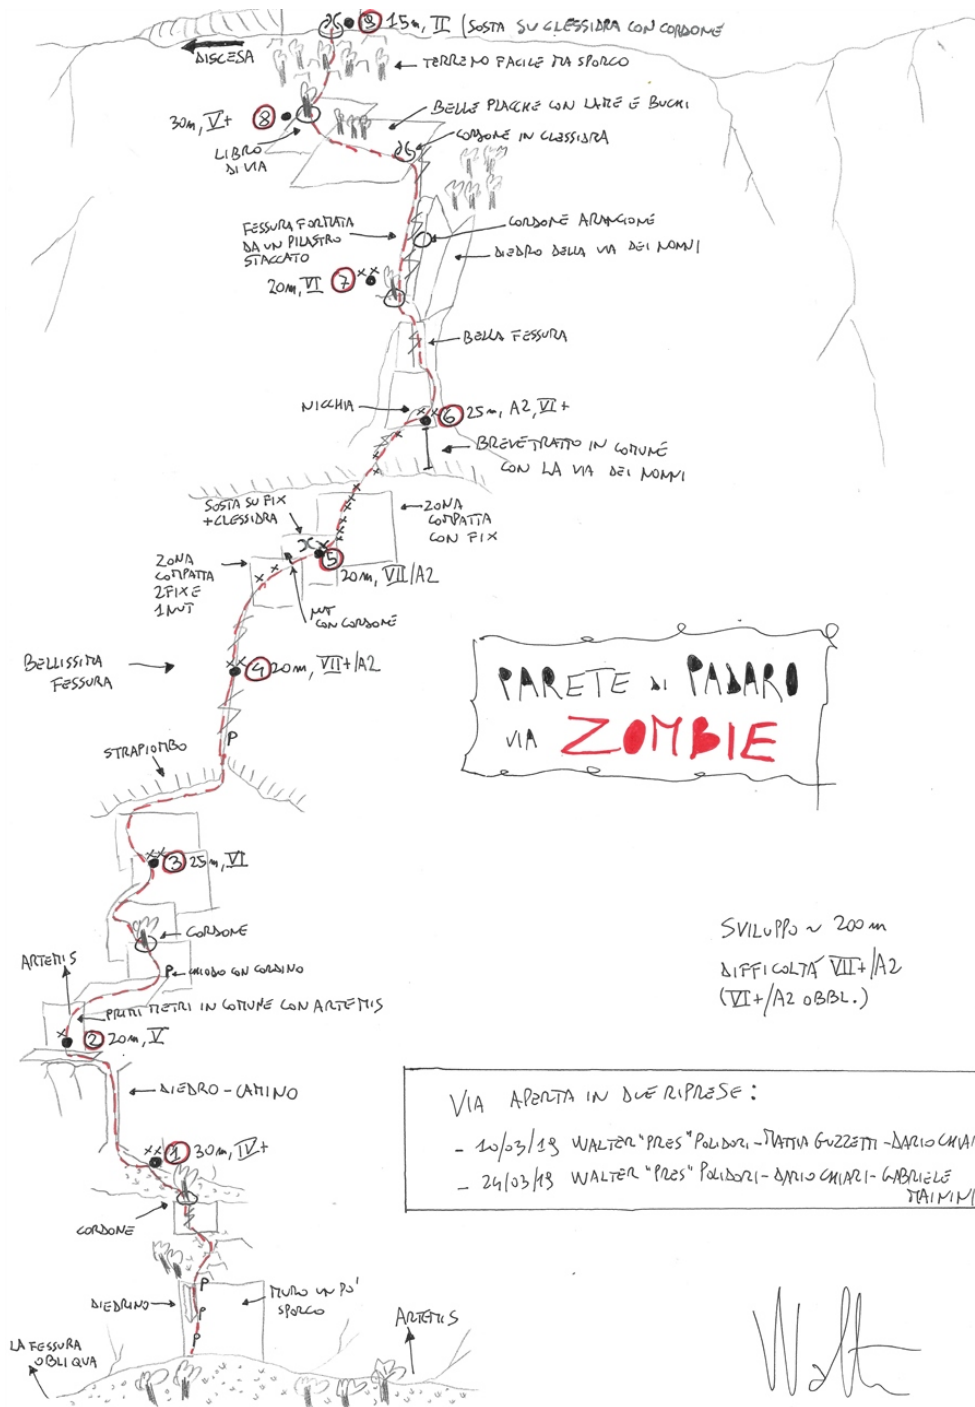 9 15m, II (SOSTA SU CLESSIDRA CON CORDONE
DISCESA
TERRENO FACILE MA SPORCO
BELLE PLACCHE CON LAME E BUCHI
30m, V+ 8
CORDONE IN CLESSIDRA
LIBRO
DI VIA
FESSURA FORMATA
DA UN PILASTRO
STACCATO
CORDONE ARANCIONE
DIEDRO DELLA VIA DEI NONNI
20m, VI 7
BELLA FESSURA
NICCHIA
6 25m, A2, VI+
BREVE TRATTO IN COMUNE
CON LA VIA DEI NONNI
SOSTA SU FIX
+ CLESSIDRA
ZONA
COMPATTA
CON FIX
ZONA
COMPATTA
2 FIX E
1 NUT
5
20m, VII/A2
NUT
CON CORDONE
BELLISSIMA
FESSURA
4 20m, VII+/A2
P
PARETE DI PADARO
VIA ZOMBIE
STRAPIOMBO
3 25m, VI
CORDONE
ARTEMIS
P CHIODO CON CORDINO
PRIMI METRI IN COMUNE CON ARTEMIS
2 20m, V
SVILUPPO ~ 200m
DIFFICOLTÀ VII+/A2
(VI+/A2 OBBL.)
DIEDRO-CAMINO
1 30m, IV+
VIA APERTA IN DUE RIPRESE:
- 10/03/19 WALTER "PRES" POLIDORI - MATTIA GUZZETTI - DARIO CHIAR
- 24/03/19 WALTER "PRES" POLIDORI - DARIO CHIARI - GABRIELE
MAININI
CORDONE
P
P
P
DIEDRINO
MURO UN PO'
SPORCO
ARTEMIS
LA FESSURA
OBLIQUA
Walter